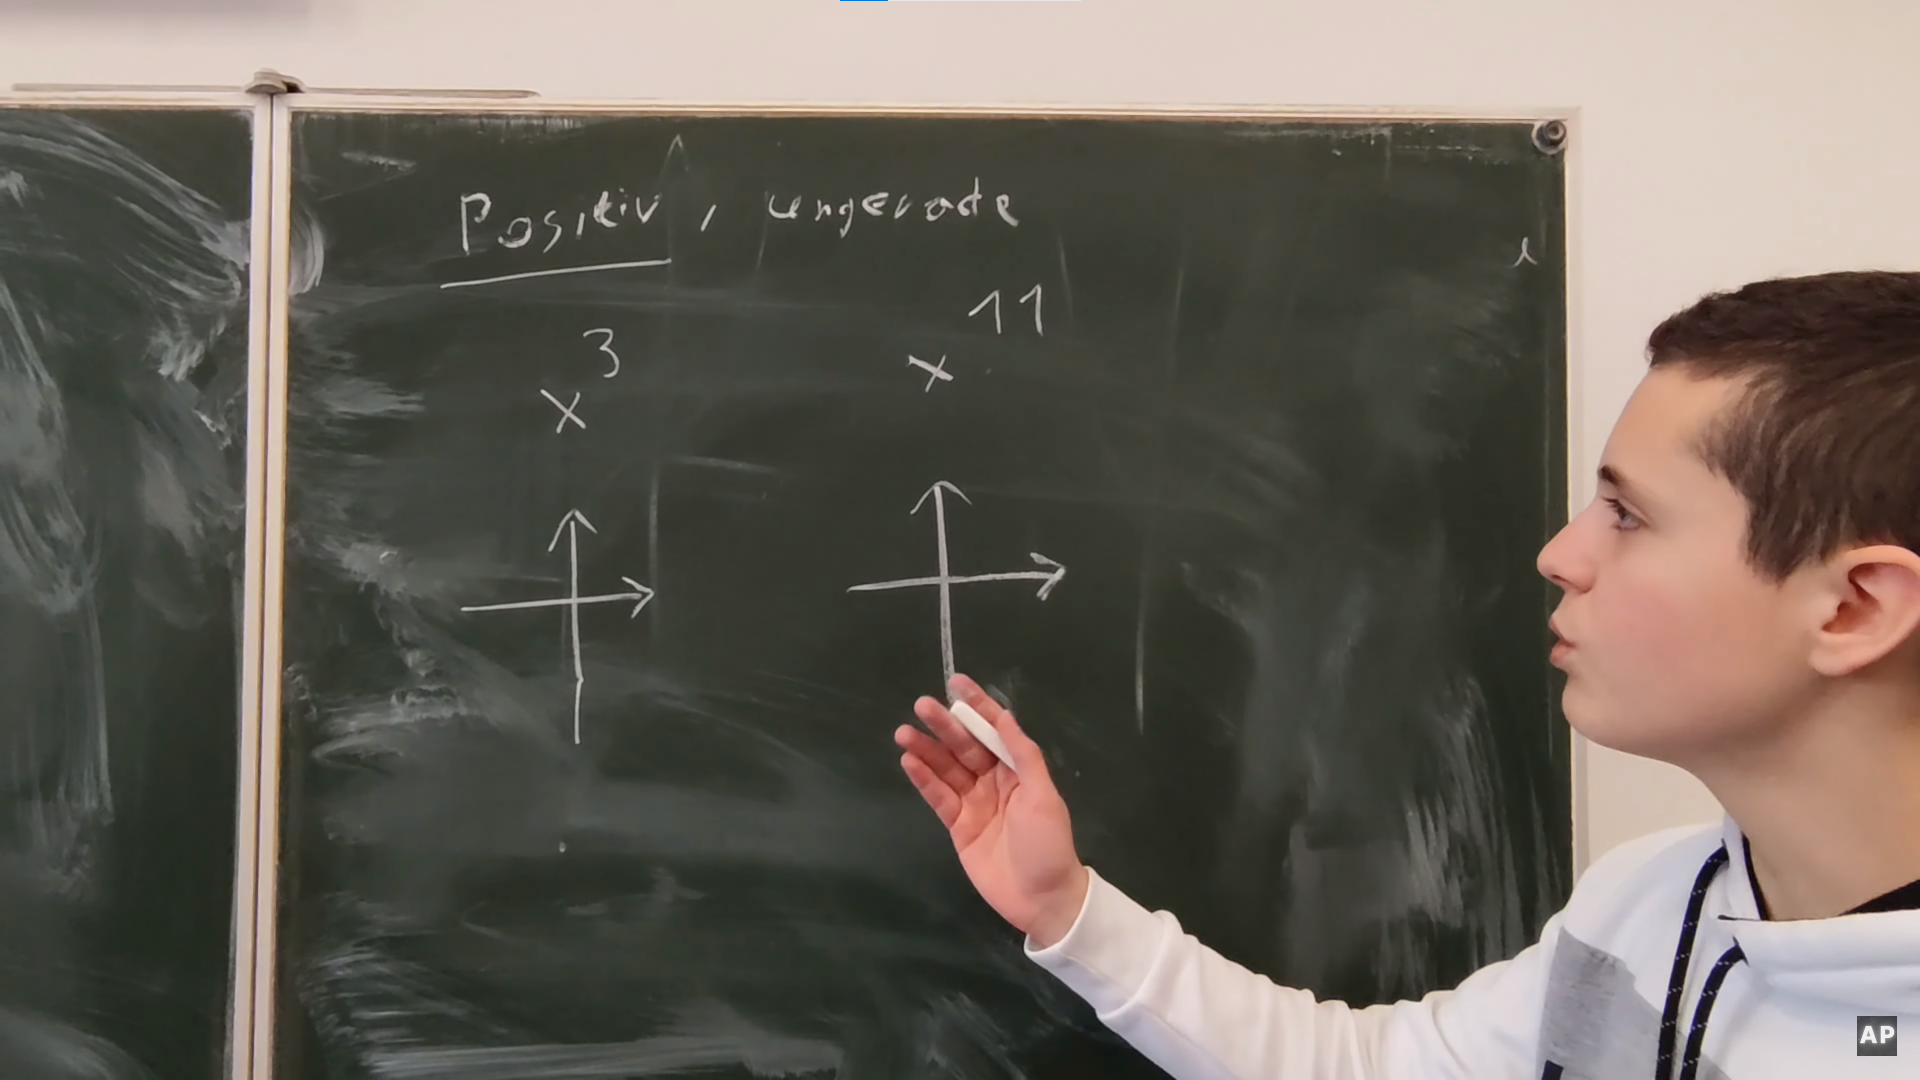 Positiv, ungerade
x³
x¹¹
AP